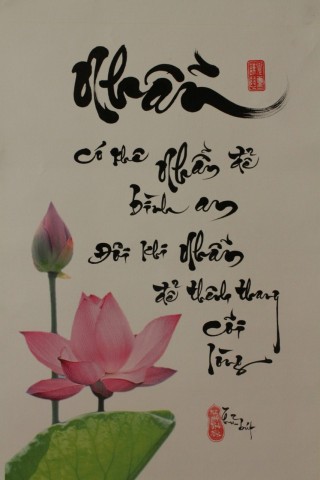 Nhẫn
Có thể Nhẫn để
bình an
Đôi khi Nhẫn
để thênh thang
cõi
lòng